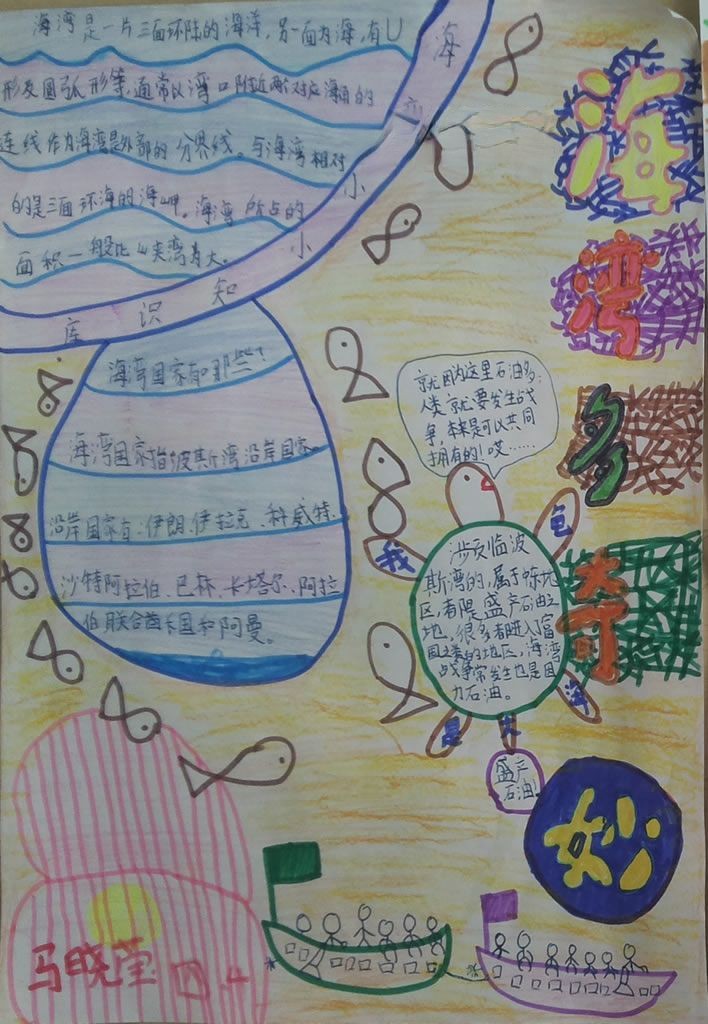 海湾是一片三面环陆的海洋,另一面为海,有U
形及圆弧形等,通常以湾口附近两个对应海角的
连线作为海湾最外部的分界线。与海湾相对
的是三面环海的海岬。海湾所占的
面积一般比峡湾为大。
海湾小小知识库
海湾国家有哪些?
海湾国家指波斯湾沿岸国家。
沿岸国家有:伊朗、伊拉克、科威特、
沙特阿拉伯、巴林、卡塔尔、阿拉
伯联合酋长国和阿曼。
海
湾
多
奇
妙
就因为这里石油多,
人类就要发生战
争,本来是可以共同
拥有的!哎……
我是大海龟
斯湾的,属于
区,
地,
国之类的地区,海湾
战争常发生也是因
力石油。
盛产
石油!
马晓莹